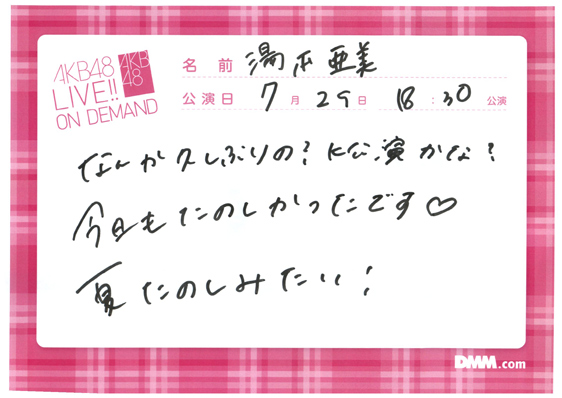 AKB48
LIVE!!
ON DEMAND
AKB
48
名前 湯本亜美
公演日 7月29日 18:30公演
なんか久しぶりの?K公演かな?
今日もたのしかったです♡
夏たのしみたい!
DMM.com